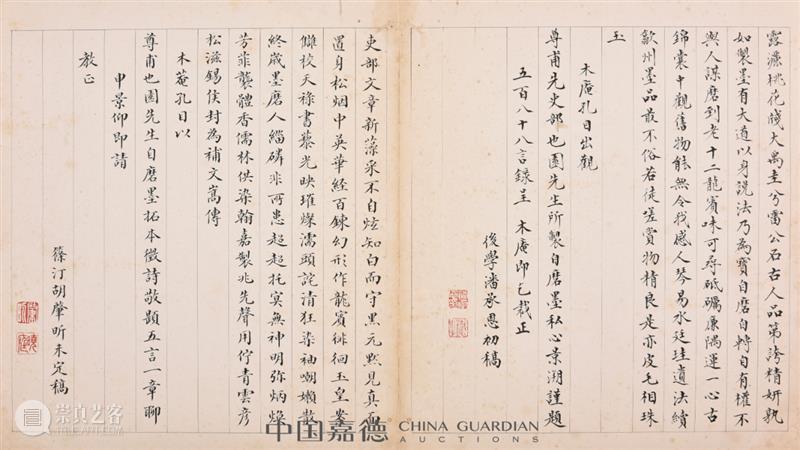 露濃桃花牋大禹圭兮雷公石古人品第誇精妍孰
如製墨有大道以身說法乃為寶自磨自轉自有權不
與人謀磨到老十二龍賓味可尋砥礪廉隅運一心古
錦囊中觀舊物能無令我感人琴易水廷珪遺法績
歙州墨品最不俗若徒嗟賞物精良是亦皮毛相珠
玉
木庵孔目出觀
尊甫先吏部也園先生所製自磨墨私心景溯謹題
五百八十八言録呈 木庵即乞裁正
後學潘承恩初稿
吏部文章新藻采不自炫知白而守黑元默見真面
置身松烟中英華經百鍊幻形作龍賓徘徊玉皇案
讎校天祿書藜光映璀燦濡頭詫清狂染袖嘲嬾散
終歲墨磨人緇磷非所患超超托冥無神明弥炳煥
芳菲襲體香儒林供染翰嘉製兆先聲用佇青雲彥
松滋錫侯封為補文嵩傳
木菴孔目以
尊甫也園先生自磨墨拓本徵詩敬題五言一章聊
申景仰即請
教正
篠汀胡肇昕未定稿
崇真艺客
中国嘉德 CHINA GUARDIAN
AUCTIONS